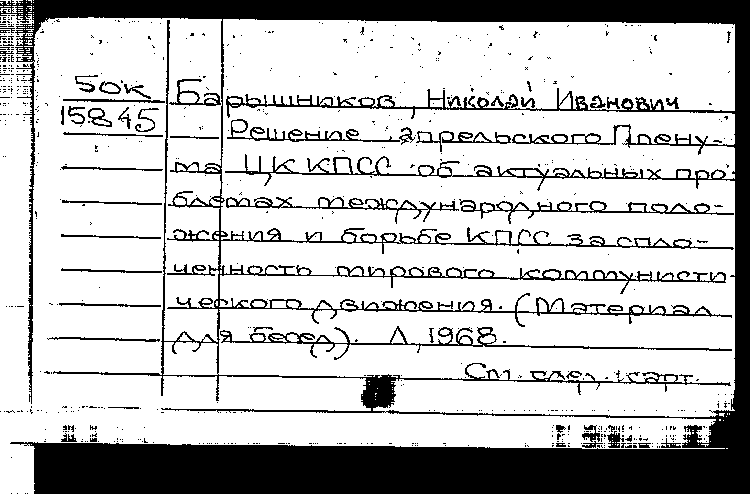 50к
15845
Барышников, Николай Иванович
Решение апрельского Плену-
ма ЦК КПСС об актуальных про-
блемах международного поло-
жения и борьбе КПСС за спло-
ченность мирового коммунисти-
ческого движения. (Материал
для бесед). Л, 1968.
См. след. карт.